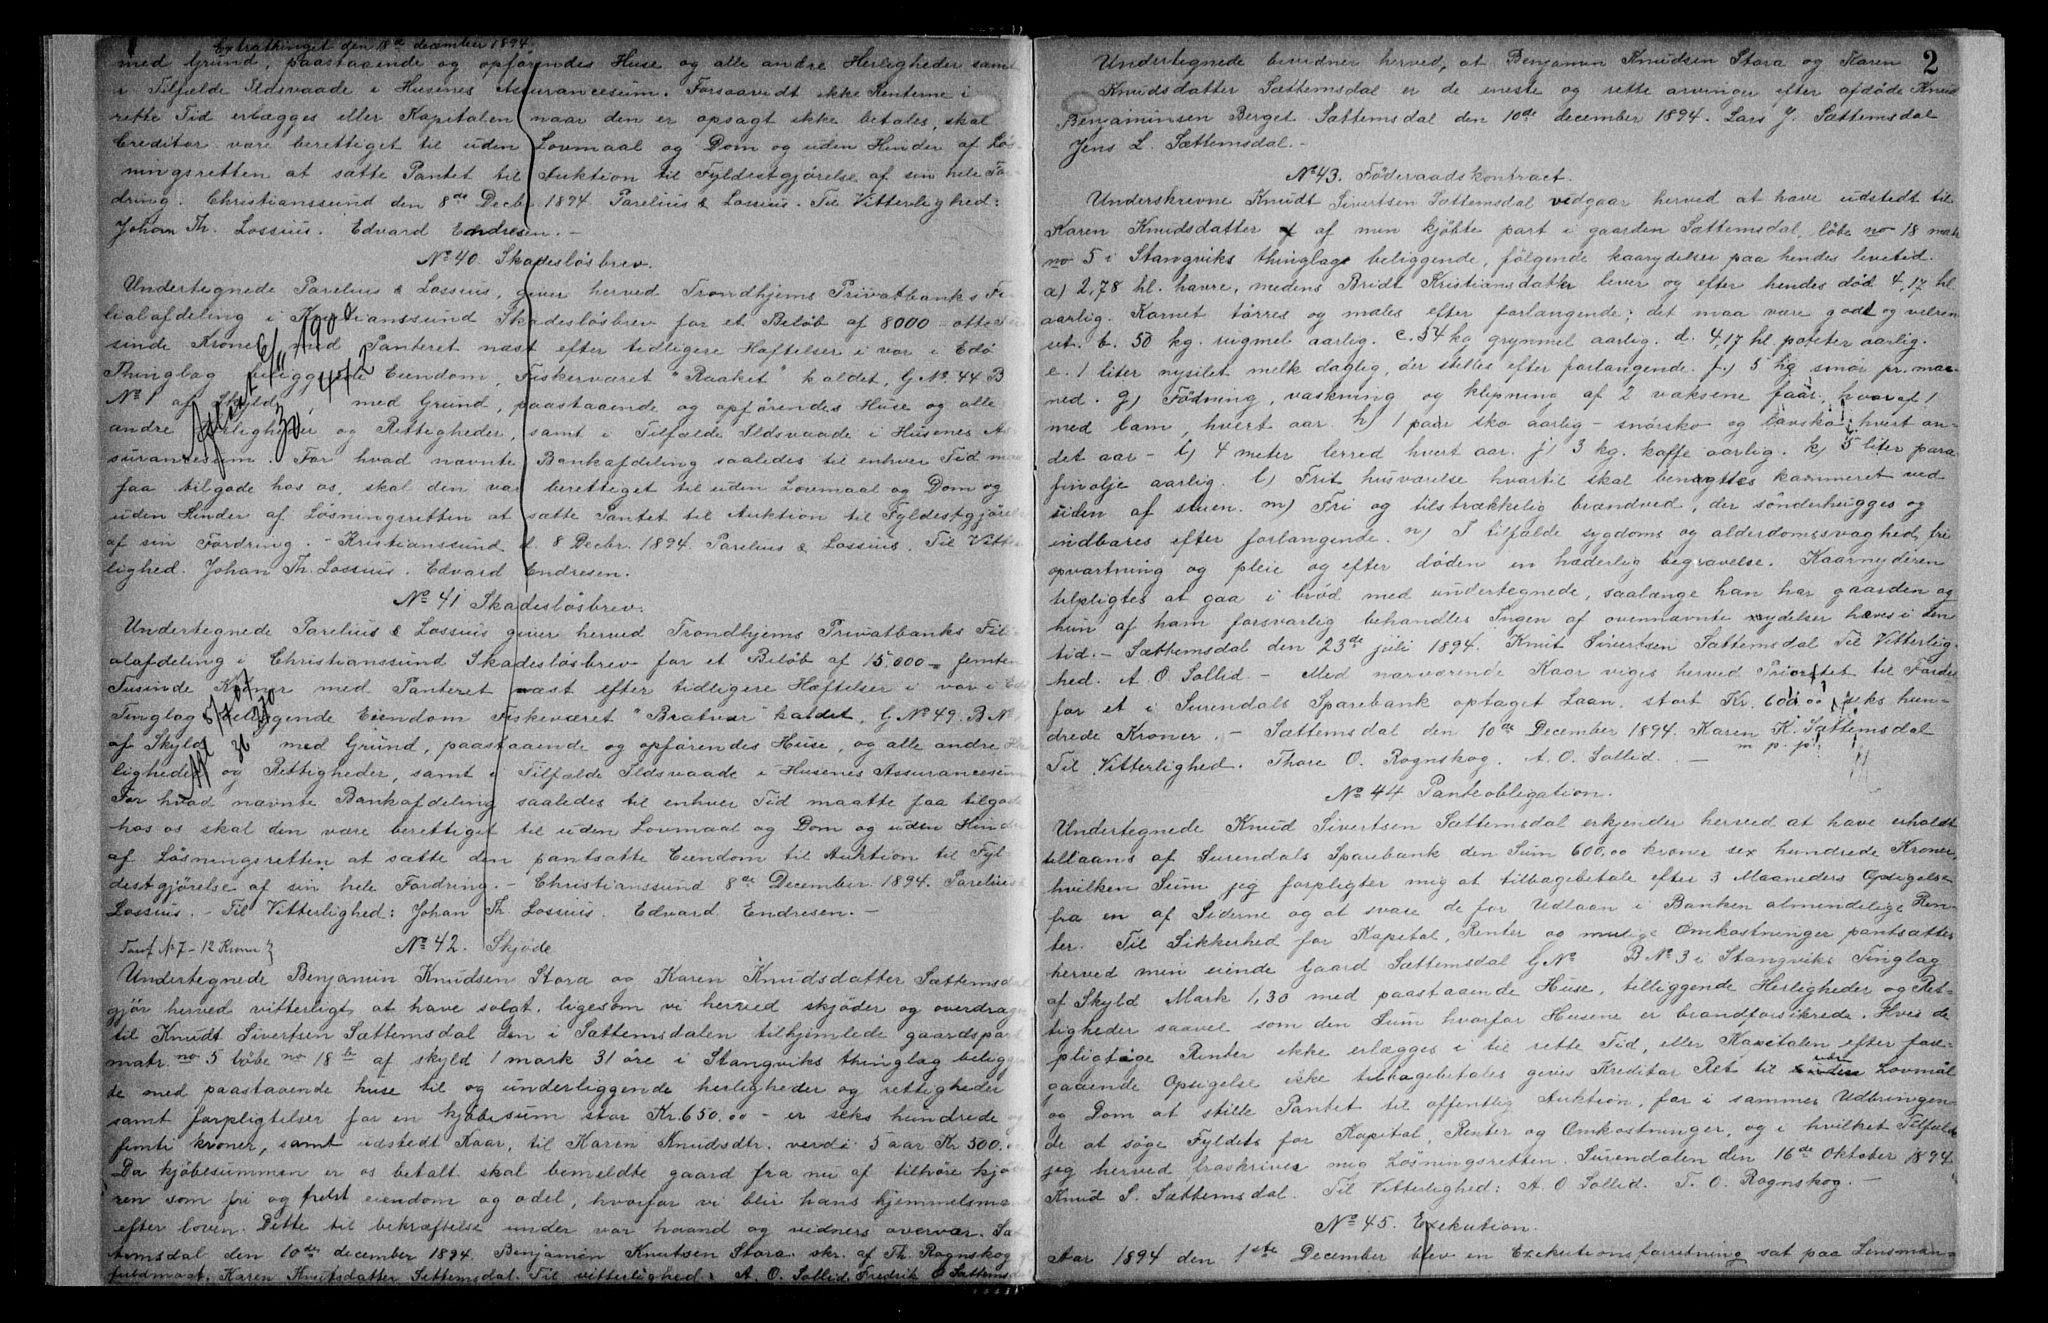 Extrathinget den 18de december 1894.
med Grund, paastaaende og opførendes Huse og alle andre Herligheder samt
i Tilfælde Ildsvaade i Husenes Assurancesum. Forsaavidt ikke Renterne i
rette Tid erlægges eller Kapitalen naar den er opsagt ikke betales, skal
Creditor være berettiget til uden Lovmaal og Dom og uden Hinder af Løs-
ningsretten at sætte Pantet til Auktion til Fyldestgjørelse af sin hele For-
dring. Christianssund den 8de Decbr. 1894 Parelius & Lossius. Til Vitterlighed:
Johan Th. Lossius. Edvard Endresen. –
No 40. Skadesløsbrev.
Undertegnede Parelius & Lossius, giver herved Trondhjems Privatbanks Fi-
lialafdeling i Kristianssund Skadesløsbrev for et Beløb af 8000 – otte Tu-
sinde Kroner med Panteret næst efter tidligere Hæftelser i vor i Edø
Thinglag beliggende Eiendom, Fiskerværet "Raaket" kaldet, G No. 44 B
No 1 af Skyld med Grund, paastaaende og opførendes Huse og alle
andre Herligheder og Rettigheder, samt i Tilfælde Ildsvaade i Husenes As-
surancesum. For hvad nævnte Bankafdeling saaledes til enhver Tid maa
faa tilgode hos os, skal den være berettiget til uden Lovmaal og Dom og
uden Hinder af Løsningsretten at sætte Pantet til Auktion til Fyldestgjørelse
af sin Fordring. – Kristianssund d. 8 Decbr. 1894. Parelius & Lossius. Til Vitter-
lighed. Johan Th. Lossius. Edvard Endresen.
Aflæst 6/11 1900
30, 472
No 41 Skadesløsbrev.
Undertegnede Parelius & Lossius giver herved Trondhjems Privatbanks Fili-
alafdeling i Christianssund Skadesløsbrev for et Beløb af 15,000 – femten
Tusinde Kroner med Panteret næst efter tidligere Hæftelser i vor i Edø
Tinglag beliggende Eiendom Fiskeværet "Bratvær" kaldet, G No 49. B No 1
af Skyld med Grund, paastaaende og opførendes Huse, og alle andre Her-
ligheder og Rettigheder, samt i Tilfælde Ildsvaade i Husenes Assurancesum
For hvad nævnte Bankafdeling saaledes til enhver Tid maatte faa tilgode
hos os skal den være berettiget til uden Lovmaal og Dom og uden Hinder
af Løsningsretten at sætte den pantsatte Eiendom til Auktion til Fyl-
destgjørelse af sin hele Fordring. – Christianssund 8de December 1894. Parelius &
Lossius. – Til Vitterlighed: Johan Th. Lossius. Edvard Endresen. –
Afl 5/7 07
36 270
No 42. Skjøde
Taxt No 7 – 12 Kroner
Undertegnede Benjamin Knudsen Stora og Karen Knudsdatter Sættemsdal
gjør herved vitterligt at have solgt, ligesom vi herved skjøder og overdrager
til Knudt Sivertsen Sættemsdal den i Sættemsdalen tilhjemlede gaardspart
matr. no 5 løbe no 18 b af skyld 1 mark 31 øre i Stangviks thinglag beliggen-
de med paastaaende huse til og underliggende herligheder og rettigheder
samt forpligtelser for en kjøbesum stor Kr. 650.00 – er seks hundrede og
femti kroner, samt udstedt Kaar, til Karen Knudsdtr. verdi 5 aar Kr 500.00
Da kjøbesummen er os betalt skal bemeldte gaard fra nu af tilhøre kjøbe-
ren som fri og frelst eiendom og odel, hvorfor vi blir hans hjemmelsmænd
efter loven. Dette til bekræftelse under vor haand og vidners overvær. Sæt-
temsdal den 10de december 1894. Benjamin Knutsen Stora skr. af Th. Rognskog e
fuldmagt. Karen Knutsdatter Sættemsdal. Til vitterlighed: A. O. Sollid. Fredrik O Sættemsdal
2
Undertegnede bevidner herved, at Benjamin Knudsen Stora og Karen
Knudsdatter Sættemsdal er de eneste og rette arvinger efter afdøde Knud
Benjaminsen Berget. Sættemsdal den 10de december 1894. Lars J. Sættemsdal
Jens L. Sættemsdal. –
No 43. Føderaadskontract.
Underskrevne Knudt Sivertsen Sættemsdal vidgaar herved at have udstedt til
Karen Knudsdatter af min kjøbte part i gaarden Sættemsdal, løbe no 18 matr.
no 5 i Stangviks thinglag beliggende, følgende kaarydelser paa hendes levetid.
a) 2,78 hl. havre, medens Bridt Kristiansdatter lever og efter hendes død 4,17 hl.
aarlig. Kornet tørres og males efter forlangende; det maa være godt og velren-
set. b. 50 kg. rugmel aarlig. c. 54 kg grynmel aarlig. d. 4,17 hl. poteter aarlig.
e. 1 liter nysilet melk daglig, der stilles efter forlangende. f.) 5 hg smør pr. maa-
ned. g) Fødning, vaskning og klipning af 2 voksene faar, hvoraf 1
med lam, hvert aar. h) 1 pair sko aarlig – snørsko og lavsko hvert an-
det aar – i) 4 meter lerred hvert aar. j) 3 kg. kaffe aarlig. k) 5 liter para-
finolje aarlig. l) Frit husværelse hvortil skal benyttes kammeret ved
siden af stuen. m) Fri og tilstrækkelig brændved, der sønderhugges og
indbæres efter forlangende. n) I tilfælde sygdoms og alderdomssvaghed, fri
opvartning og pleie og efter døden en hæderlig begravelse. Kaarnyderen
tilpligtes at gaa i brød med undertegnede, saalænge han har gaarden og
hun af ham forsvarlig behandles Ingen af ovennævnte ydelser hæves i den
tid. – Sættemsdal den 23de juli 1894. Knut Sivertsen Sættemsdal Til Vitterlig-
hed. A. O. Sollid. – Med nærværende Kaar viges herved Prioritet til Fordel
for et i Surendals Sparebank optaget Laan, stort Kr. 600.00 seks hun-
drede Kroner. – Sættemsdal den 10de December 1894. Karen K. Sættemsdal
m. p. p.
Til Vitterlighed. Thore O. Rognskog. A. O. Sollid. –
No 44 Panteobligation.
Undertegnede Knud Sivertsen Sættemsdal erkjender herved at have erholdt
tillaans af Surendals Sparebank den Sum 600,00 krone sex hundrede Kroner,
hvilken Sum jeg forpligter mig at tilbagebetale efter 3 Maaneders Opsigelse
fra en af Siderne og at svare de for Udlaan i Banken almindelige Ren-
ter. Til Sikkerhed for Kapital, Renter og mulige Omkostninger pantsætter
herved min eiende Gaard Sættemsdal G No B No 3 i Stangviks Tinglag
af Skyld Mark 1,30 med paastaaende Huse, tilliggende Herligheder og Ret-
tigheder saavel som den Sum hvorfor Husene er brandforsikrede. Hvis de
pligtige Renter ikke erlægges i til rette Tid, eller Kapitalen efter fore-
gaaende Opsigelse ikke tilbagebetales gives Kreditor Ret til uden Lovmål
og Dom at stille Pantet til offentlig Auktion, for i sammes Udbringen-
de at søge Fyldest for Kapital, Renter og Omkostninger, og i hvilket Tilfælde
jeg herved fraskriver mig Løsningsretten. Surendalen den 16de Oktober 1894
Knud S. Sættemsdal. Til Vitterlighed: A. O. Sollid. T. O. Rognskog. –
No 45. Exekution.
Aar 1894 den 1ste December blev en Exekutionsforretning sat paa Lensman-